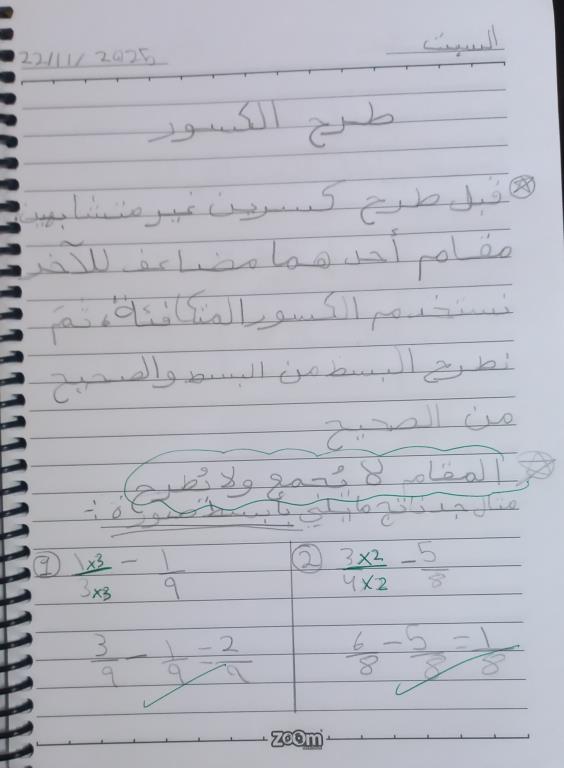 السبت
22/11/2025
طرح الكسور
قبل طرح كسرين غير متشابهين
مقام أحدهما مضاعف للآخر
نستخدم الكسور المتكافئة، ثم
نطرح البسط من البسط والصحيح
من الصحيح
المقام لا يُجمع ولا يُطرح
مثال جد ناتج ما يلي بأبسط صورة :-
① 1×3/3×3 − 1/9
② 3×2/4×2 − 5/8
3/9 − 1/9 = 2/9
6/8 − 5/8 = 1/8
zoom